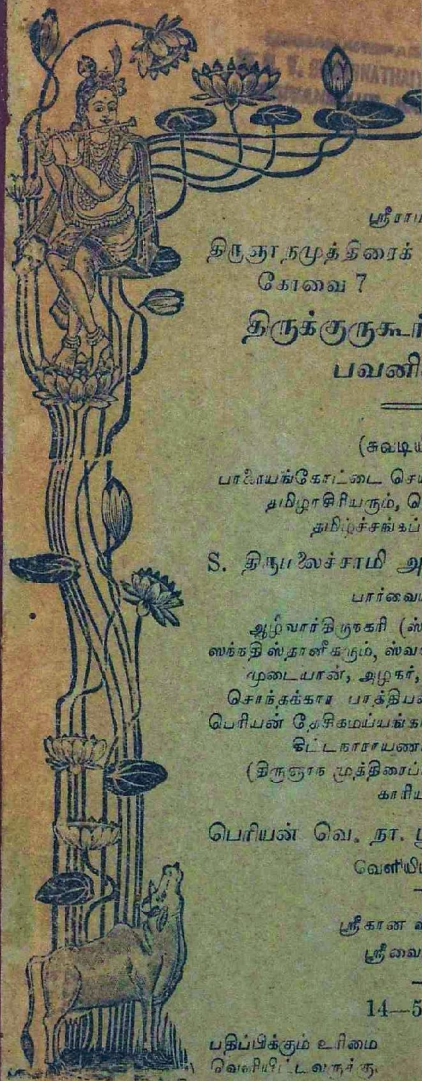 ஸ்ரீராம
திருஞானமுத்திரைக்
கோவை 7
திருக்குருகூர்
பவனி
(சுவடிய
பாளையங்கோட்டை செய
தமிழாசிரியரும்,
தமிழ்ச்சங்கப்
S. திருமலைச்சாமி அ
பார்வை
ஆழ்வார்திருநகரி (ஸ்
ஸந்நதி ஸ்தானீகரும், ஸ்வ
முடையான், அழகர்,
சொந்தக்கார பாத்திய
பெரியன் தேசிகமய்யங்கா
கிட்டநாராயண
(திருஞான முத்திரைப்
காரிய
பெரியன் வெ. நா.
வெளியி
ஸ்ரீகான
ஸ்ரீவை
14—5
பதிப்பிக்கும் உரிமை
வெளியிட்டவருக்கு.